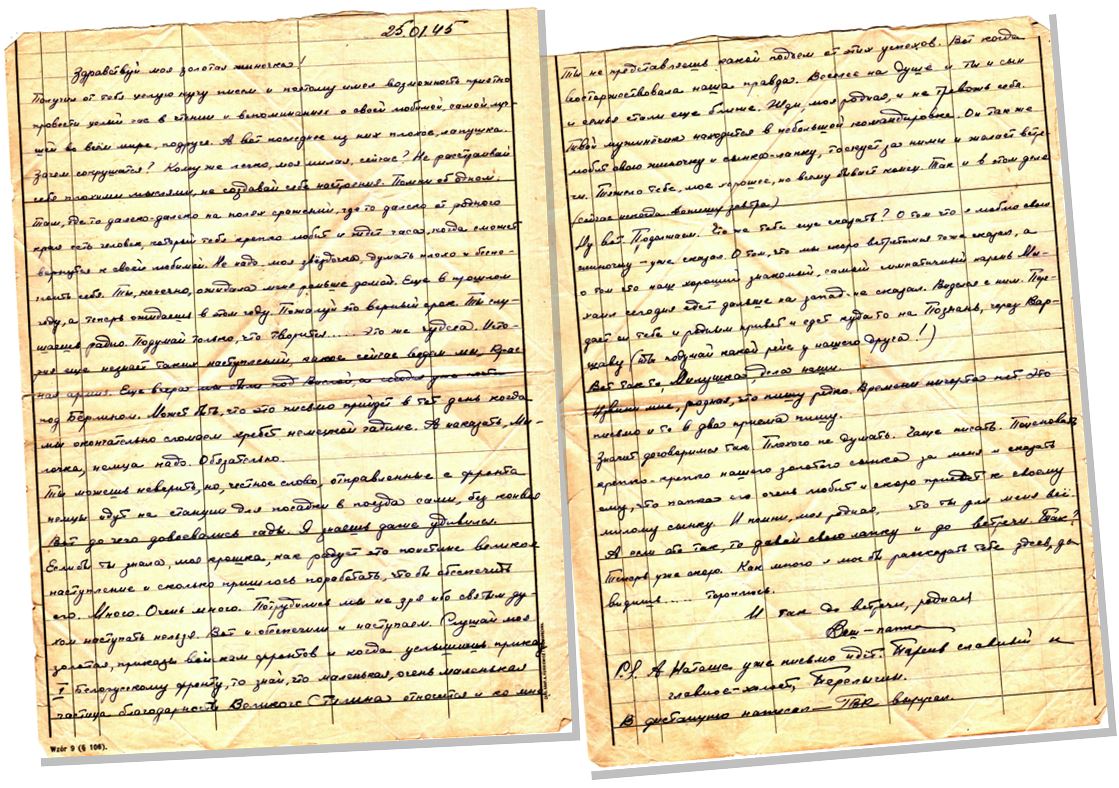 25.01.45
Здравствуй моя золотая жиночка!
Получил от тебя целую кучу писем и поэтому имел возможность приятно
провести целый час в чтении и вспоминании о своей любимой самой луч-
шей во всём мире, подруге. А вот последнее из них плохое, лапушка.
Зачем сокрушатся? Кому же легко, моя милая, сейчас? Не расстраивай
себя плохими мыслями, не создавай себе настроения. Помни об одном.
Там, где то далеко-далеко на полях сражений, где то далеко от родного
края есть человек, который тебя крепко любит и ждет часа, когда сможет
вернутся к своей любимой. Не надо, моя звёздочка, думать плохо и беспо-
коить себя. Ты, конечно, ожидала меня раньше домой. Еще в прошлом
году, а теперь ожидаешь в этом году. Пожалуй это верный срок. Ты слу-
шаешь радио. Подумай только, что творится.... Это же чудеса. Исто-
рия еще незнает таких наступлений, какое сейчас ведем мы, Крас-
ная армия. Еще вчера мы были под Вислой, а сегодня уже почти
под Берлином. Может быть, что это письмо прийдет в тот день когда
мы окончательно сломаем хребет немецкой гадине. А наказать, Ми-
лочка, немца надо. Обязательно.
Ты можешь неверить, но, честное слово, отправленные с фронта
немцы идут на станции для посадки в поезда сами, без конвоя
Вот до чего довоевались гады. Я знаешь даже удивился.
Если бы ты знала, моя крошка, как радует это поистине великое
наступление и сколько пришлось поработать, что бы обеспечить
его. Много. Очень много. Потрудились мы не зря ибо святым ду-
хом наступать нельзя. Вот и обеспечили и наступаем. Слушай моя
золотая, приказы войскам фронтов и когда услышишь приказ
I Белорусскому фронту, то знай, что маленькая, очень маленькая
частица благодарности Великого Сталина относится и ко мне
Wzór 9 (§ 106).
Ты не представляешь какой подъем от этих успехов. Вот когда
восторжествовала наша правда. Веселее на душе и ты и сын
и семья стали еще ближе. Жди, моя родная, и не тревожь себя.
Твой мужинёчек находится в небольшой командировке. Он так же
любит свою жиночку и сынка-лапку, тоскует за ними и желает встре-
чи. Тяжело тебе, мое хорошее, но всему бывает конец. Так и в этом деле
(сейчас некогда допишу завтра)
Ну вот. Продолжаем. Что же тебе еще сказать? О том что я люблю свою
жиночку - уже сказал. О том, что мы скоро встретимся тоже сказал, а
о том что наш хороший знакомый, самый симпатичный парень Ми-
хаил сегодня едет дальше на запад - не сказал. Виделся с ним. Пере-
даёт он тебе и родным привет и едет куда то на Познань, через Вар-
шаву (ты подумай какой рейс у нашего друга!)
Вот так то, Милушка, дела наши.
Извини мне, родная, что пишу редко. Времени ничерта нет. Это
письмо и то в два приема пишу.
Значит договорились так. Плохого не думать. Чаще писать. Поцеловать
крепко-крепко нашего золотого сынка за меня и сказать
ему, что папка его очень любит и скоро приедет к своему
милому сынку. И помни, моя родная, что ты для меня всё.
А если это так, то давай свою лапку и до встречи. Так?
Теперь уже скоро. Как много я мог бы рассказать тебе здесь, да
видишь.... тороплюсь.
И так до встречи, родная
Ваш - папка
P.S. А Наташе уже письмо идёт. Парень славный и
главное - холост,
В
написал -